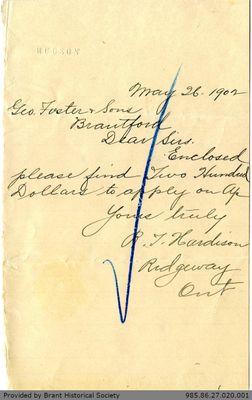 HUDSON
May 26. 1902
Geo. Foster & Sons
Brantford
Dear Sirs.
Enclosed
please find Two Hundred
Dollars to apply on a/c
Yours truly
R. T. Hardison
Ridgeway
Ont
Provided by Brant Historical Society
985.86.27.020.001